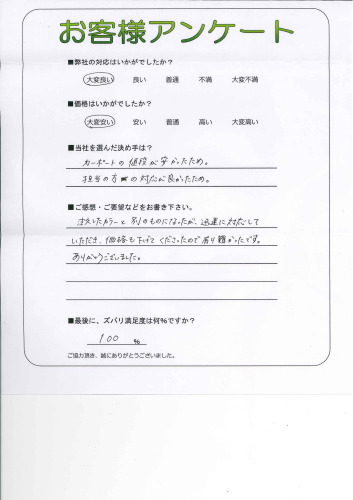 お客様アンケート
■弊社の対応はいかがでしたか？
大変良い 良い 普通 不満 大変不満
■価格はいかがでしたか？
大変安い 安い 普通 高い 大変高い
■当社を選んだ決め手は？
カーポートの値段が安かったため。
担当の方の対応が良かったため。
■ご感想・ご要望などをお書き下さい。
注文したカラーと別のものになったが、迅速に対応して
いただき、価格も下げてくださったので有り難かったです。
ありがとうございました。
■最後に、ズバリ満足度は何％ですか？
100 ％
ご協力頂き、誠にありがとうございました。